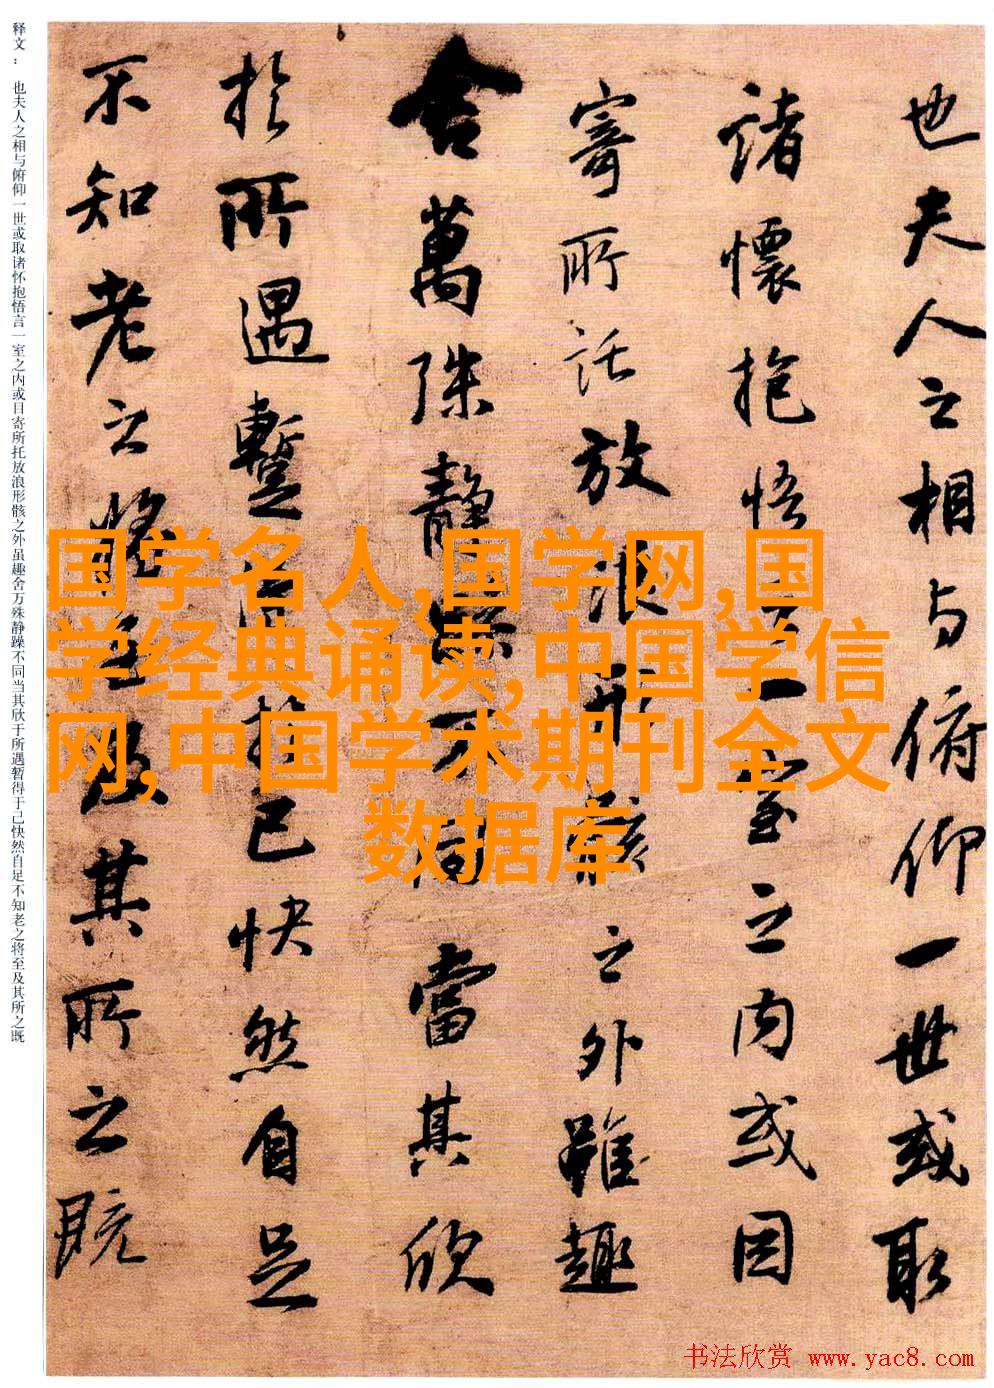 也夫人之相与俯仰一世或取
諸懷抱悟言一室之内或因
寄所託放浪形骸之外雖趣
舍萬殊静躁不同當其欣
於所遇暫得於已快然自足
不知老之将至及其所之既
释文： 也夫人之相与俯仰一世或取诸怀抱悟言一室之内或目寄所托放浪形骸之外虽趣舍万殊静躁不同当其欣于所遇暂得于己快然自足不知老之将至及其所之既
国学名人,国学网,国
学经典诵读,中国学信
网,中国学术期刊全文
数据库
书法欣赏 www.yac8.com